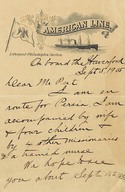 AMERICAN LINE.
Liverpool-Philadelphia Service.
On board the Haverford
Sept 5 1905
Dear Mr
I am en
route for Persia. I am
accompanied by wife
& four children &
by other missionaries
& a trained nurse.
We hope
you about Sept